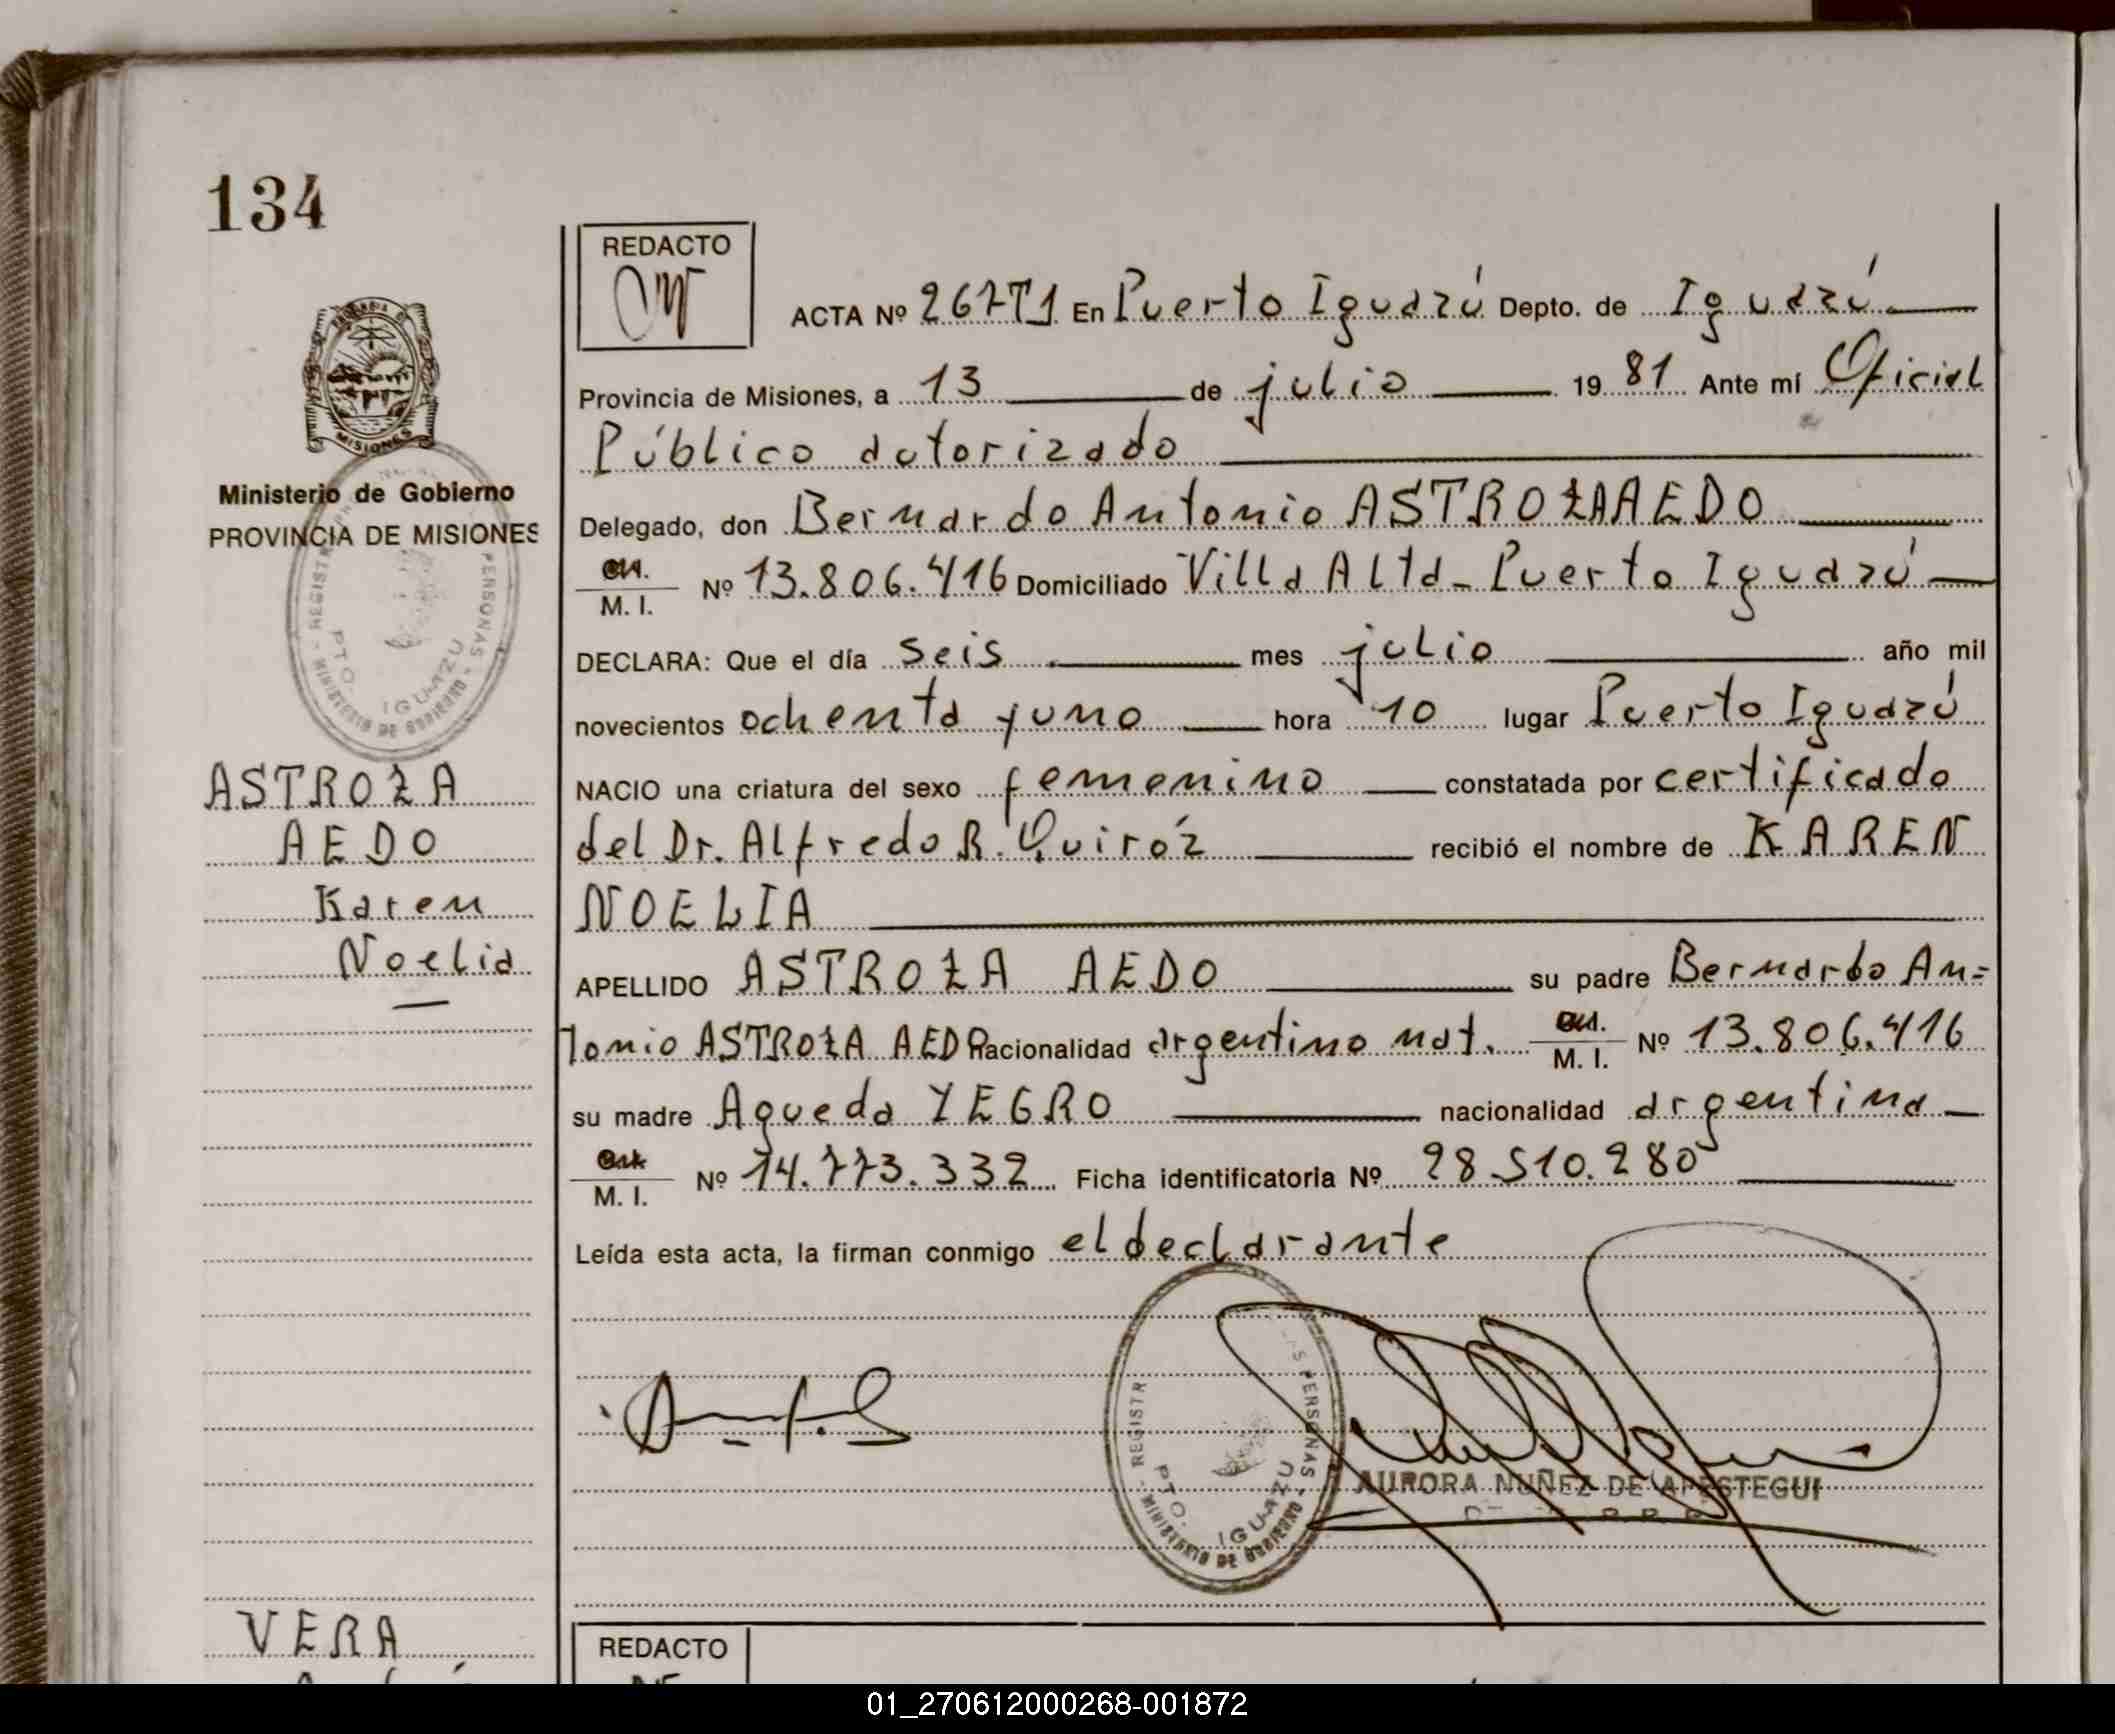 134
REDACTO
ACTA Nº 267T1 En Puerto Iguazú Depto. de Iguazú
Provincia de Misiones, a 13 de julio 1981 Ante mí Oficial
Público autorizado
Ministerio de Gobierno
PROVINCIA DE MISIONES
Delegado, don Bernardo Antonio ASTROZA AEDO
M. I. Nº 13.806.416 Domiciliado Villa Alta - Puerto Iguazú
DECLARA: Que el día seis mes julio año mil
novecientos ochenta y uno hora 10 lugar Puerto Iguazú
ASTROZA
AEDO
Karen
Noelia
NACIO una criatura del sexo femenino constatada por certificado
del Dr. Alfredo R. Quiróz recibió el nombre de KAREN
NOELIA
APELLIDO ASTROZA AEDO su padre Bernardo An=
tonio ASTROZA AEDO nacionalidad argentino nat. M. I. Nº 13.806.416
su madre Agueda YEGRO nacionalidad argentina
M. I. Nº 14.773.332 Ficha identificatoria Nº 28510.280
Leída esta acta, la firman conmigo el declarante
PTO. IGUAZU
MINISTERIO DE GOBIERNO
AURORA NUÑEZ DE APESTEGUI
VERA
REDACTO
01_270612000268-001872